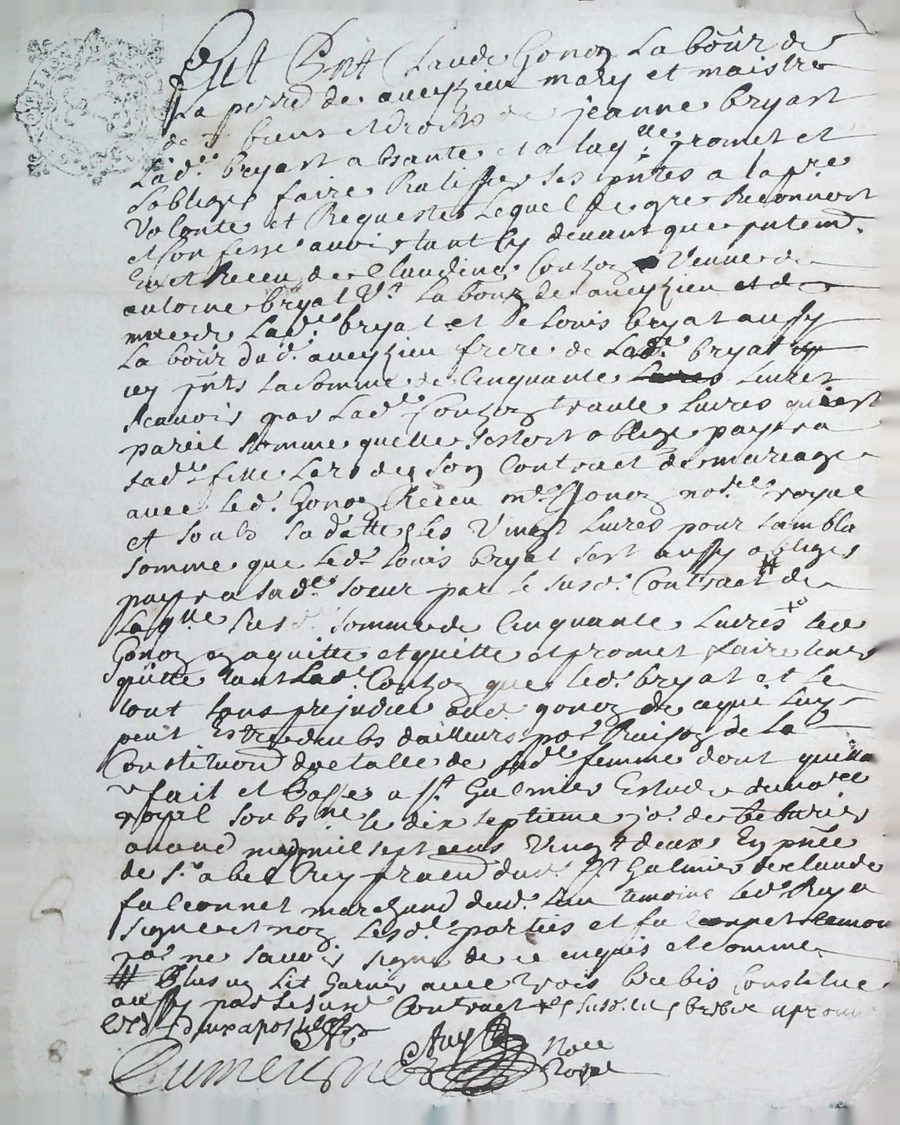 Fut pnt Claude Gonoz Labour de
La perré de aveyzieu mary et maistre
des biens et droits de jeanne bryast
Lad.e bryast absante et a laq.lle promet et
soblige faire Ratiffier ses pntes a la p.re
Volonte et Requeste Lequel de gre Reconnoit
et Confesse avoir tant cy devant que pntem.
Eu et Receu de Claudine Couzoz Veuve de
antoine bryat V.t Labour de aveyzieu et de
mere de Lad.e bryat et de Louis bryat aussy
Labour dud. aveyzieu frere de Lad.e bryat
icy pnts La somme de Cinquante Livres
scavoir par Lad.e Couzoz trante Livres qui est
pareil somme quelle sestoit oblige payer a
sad.e fille Lors de son Contract de mariage
avec Led. Gonoz Receu m.e Gonoz no.re royal
et soubs sa datte & Les Vingt Livres pour sambla
somme que Led. Louis bryat sest aussy oblige
payer a sad.e soeur par le susd. Contract # de
Laq.lle susd. somme de Cinquante Livres led.
Gonoz aquitte et quitte et promet faire tenir
quitte tant Lad. Couzoz que led. bryat et le
tout sans prejudice aud. gonoz de ce qui Luy
peut Estre deubs dailleurs po.r Raison de La
Constitution dotalle de sad.e femme dont
fait et Passé a S.t Galmier Estude du no.re
royal soubsne le dix septieme jo. de febvrier
avand midy mil sept cens Vingt deux En pnce
de s.r abel Rey praend dud. S.t Galmier de claude
falconnet marchand dud. Lieu temoins Led. Rey a
signe et non Lesd. parties et falconnet temoin
po.r ne savoir signe de ce enquis et somme
# Plus un Lit Garnie avec trois brebis Constitue
aussy par Le susd. Contract
Rey
Dumeygne
Note
Royal